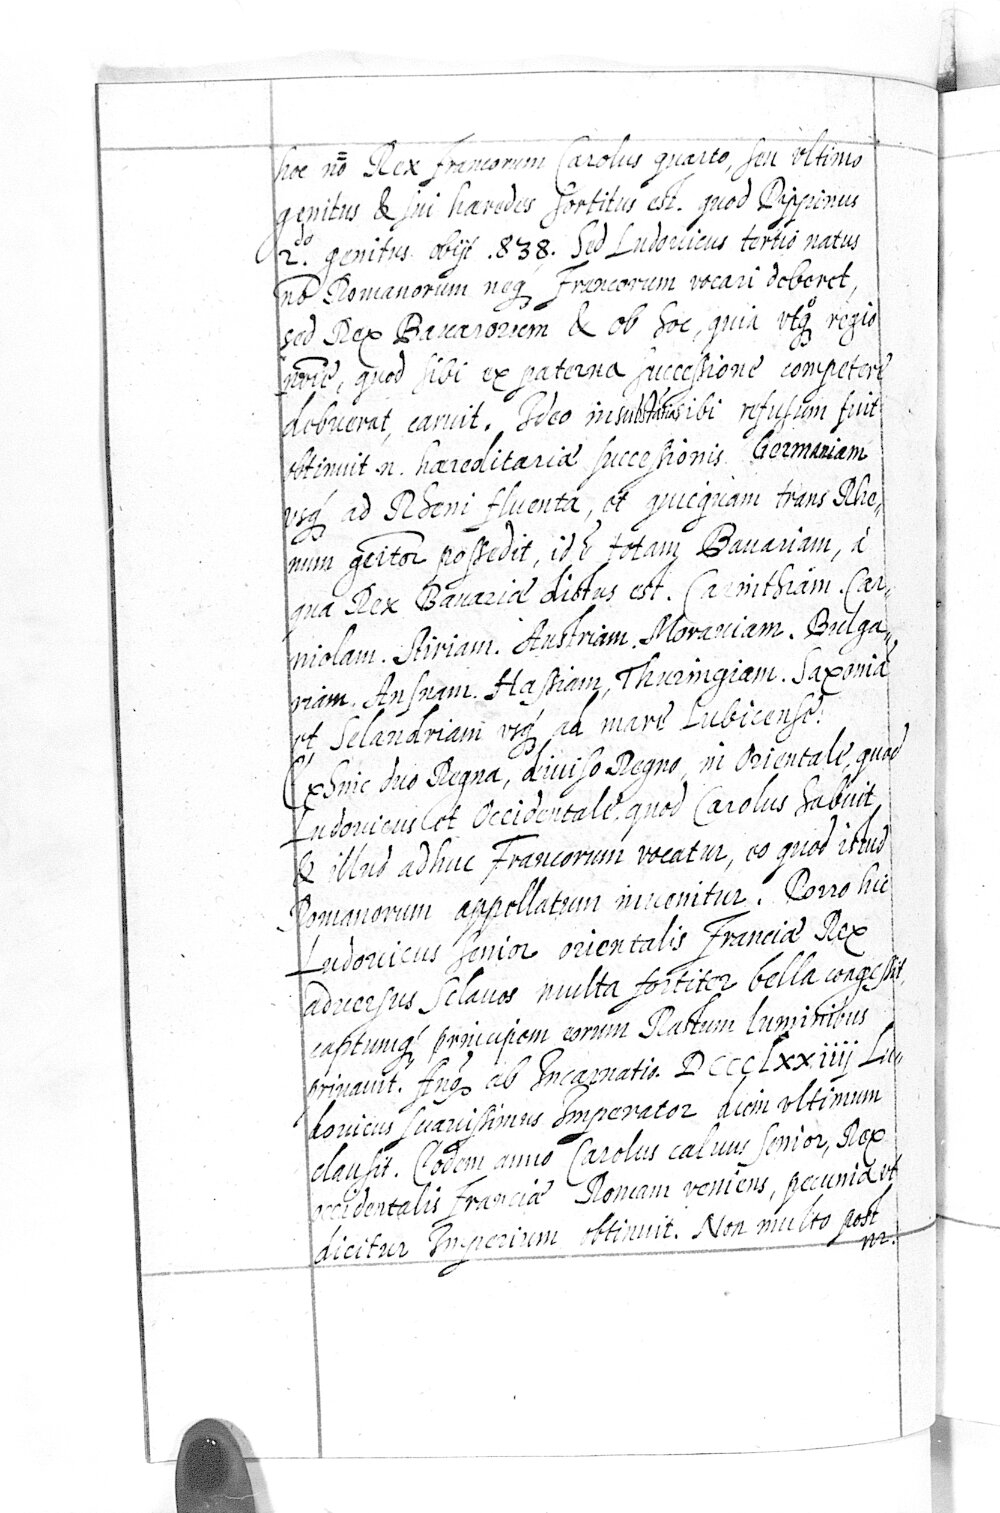 hoc nō Rex Francorum Carolus quarto, seu vltimo
genitus & sui hæredes sortitus est. quod Pippinus
2.do genitus obijt .838. Sed Ludouicus tertio natus
nō Romanorum neq; Francorum vocari deberet,
sed Rex Bauarorum & ob hoc, quia vtq; regio
quod sibi ex paterna successione competere
debuerat, caruit. Ideo in substantias ibi refusum fuit
obtinuit n. hæreditariæ successionis Germaniam
vsq; ad Rheni fluenta, et quicquam trans Rhe„
num possedit, id ē totam Bauariam, à
qua Rex Bauariæ dictus est. Carinthiam. Car„
niolam. Stiriam. Austriam. Morauiam. Bulga„
riam. Hassiam, Thuringiam. Saxoniā
et Selandriam vsq; ad mare Lubicense.
Ex hinc duo Regna, diuiso Regno in Orientale, quod
Ludouicus et Occidentale quod Carolus habuit
& illud adhuc Francorum vocatur, eo quod istud
Romanorum appellatum inuenitur. Porro hic
Ludouicus senior orientalis Franciæ Rex
aduersus Sclauos multa fortiter bella congessit,
captumq; principem eorum Rastum luminibus
priuauit. Anq; ab Incarnatio. DCCCLXXiiij Lu„
douicus suauissimus Imperator diem vltimum
clausit. Eodem anno Carolus caluus senior, Rex
occidentalis Franciæ Romam veniens, pecunia vt
dicitur Imperium obtinuit. Non multo post
nr.